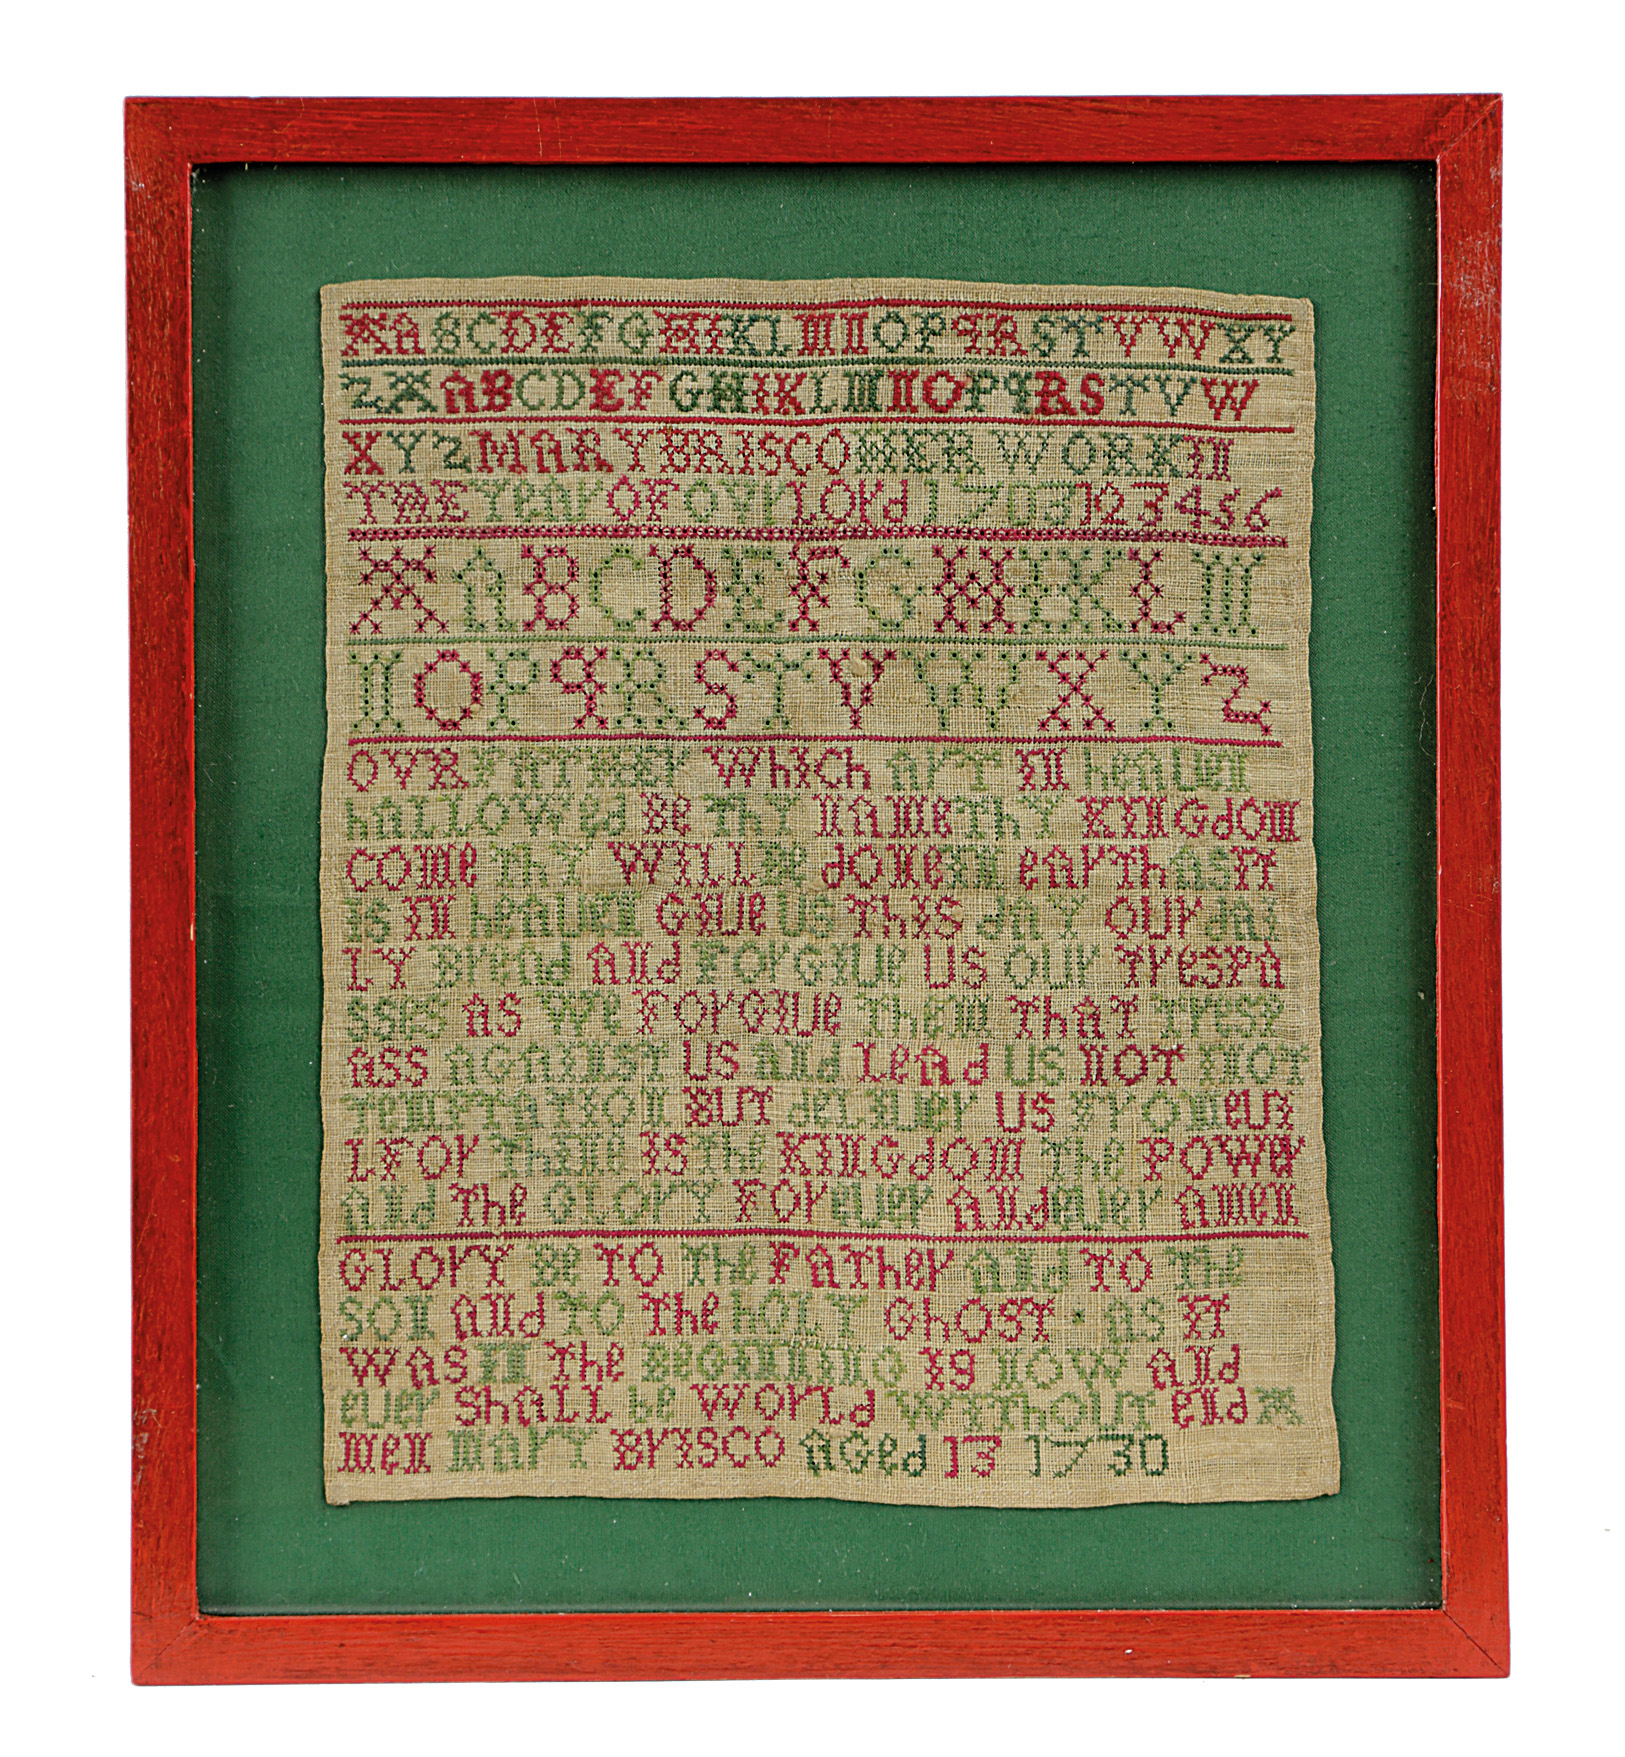 AABCDEFGHIKLMNOPQRSTVWXY
ZAABCDEFGHIKLMNOPQRSTVW
XYZ MARY BRISCO HER WORK IN
THE YEAr OF OVR LOrd 123456
AABCDEFGHIKLM
NOPQRSTVWXYZ
OVR FATHEr WhICh ArT IN heAUeN
hALLOWed Be ThY NAMe ThY KINGdOM
COMe ThY WILL Be dONe IN eArTh AS IT
IS IN heAUeN GIUe US ThIS dAY OUr dAI
LY BreAd ANd FOrGIUe US OUr TreSPA
SSeS AS We FOrGIUe TheM ThAT TreSP
ASS AGAINST US ANd LeAd US NOT INOT
TeMPTATION BUT deLIUer US FrOM eUI
L FOr ThINe IS The KINGdOM The POWer
ANd The GLOrY FOr eUer ANd eUer AMeN
GLOrY Be TO The FATher ANd TO The
SON ANd TO The hOLY GhOST · AS IT
WAS IN The BeGINNING IS NOW ANd
eUer ShALL be WOrLd WIThOUT eNd A
MeN MArY BrISCO AGed 13 1730